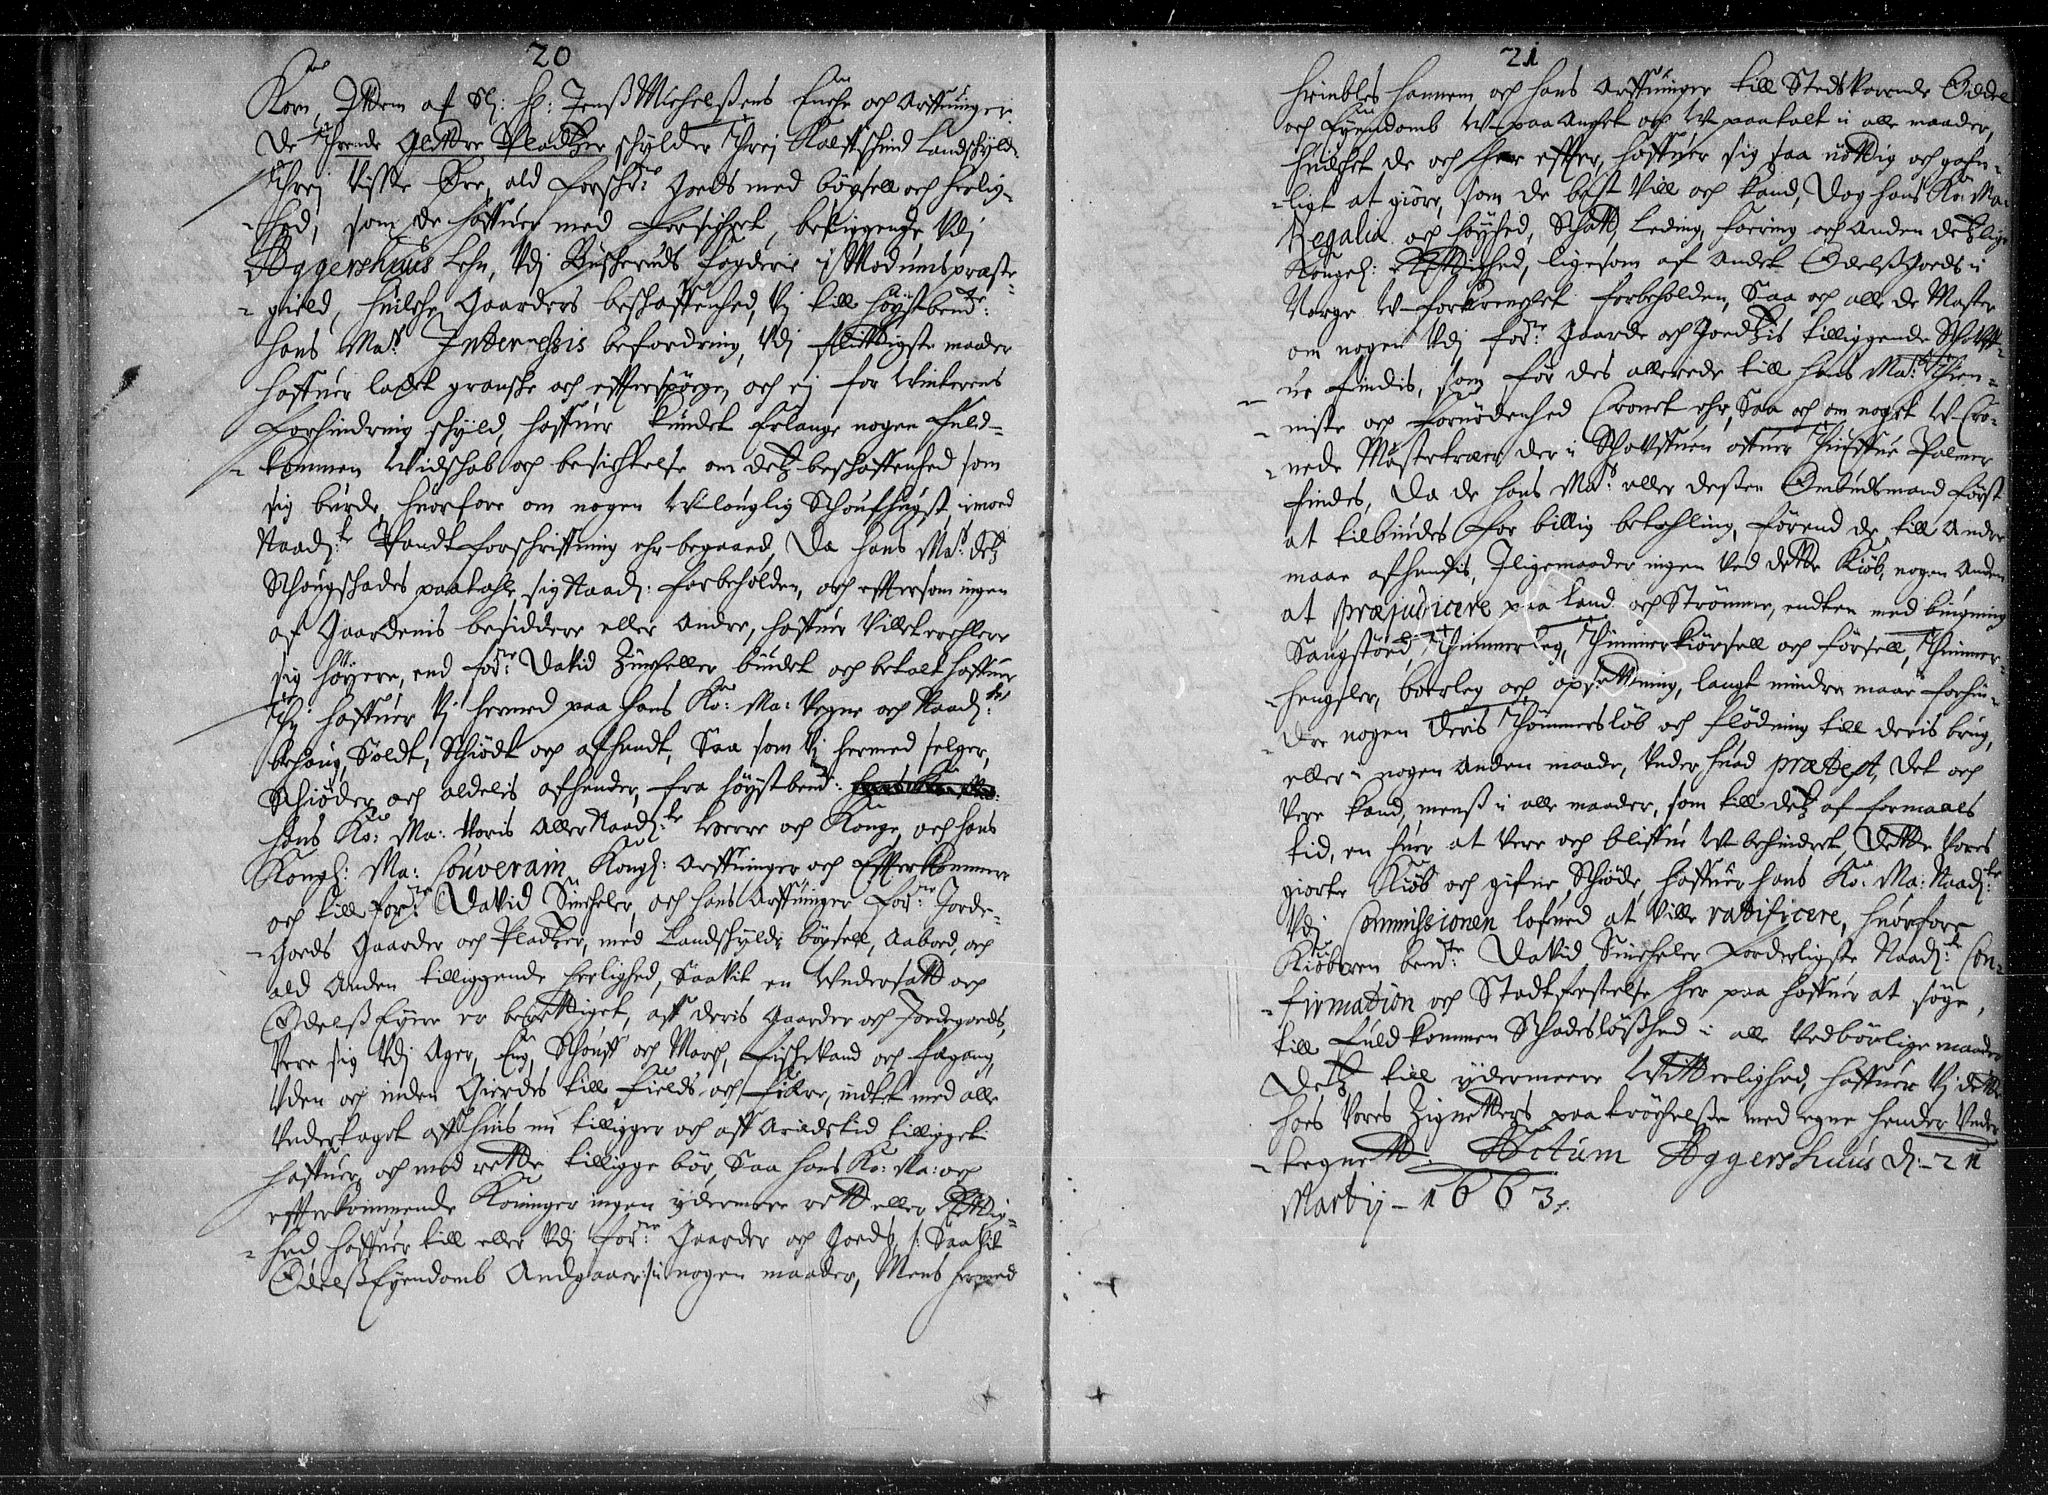 20
Korn, Ittem af Sl: H: Jenß Michelßens Enche och Arffuinger
De Thrende Gledtre Pladtzer schylder Threj Kalffschind Landschyld
Threj Visste Øre, ald forschr:ne Goeds med böxsell och herlig-
hed, som de hoffuer med forsichert, beliggende Vdj
Aggershuus Lehn, Vdj Buscheruds fogderie i Modums præste-
gield, huilche Gaarders beschaffenhed, Vj till höystbemte:
hans Ma:ts Interessis befordring, Vdj flittigste maader
haffuer ladet granshe och effterspörge, och ej for Winterens
forhindring schyld, haffuer kundet Erlange nogen fuld-
kommen Widschab och besichtelse om detz beschaffenhed som
sig burde, huorfore om nogen Wlouglig Schoufhugst imod
Naadj:te Pandtforschriffning ehr begaaed, Da hans Ma:ts detz
Schougschades paatahle sig Naadj: forbeholden, och effersom ingen
af Gaardenis besiddere eller Andre, haffuer Villet erchlere
sig höyere, end for:ne David Sincheller budet och betalt haffuer
Thj haffuer Vj hermed paa hans Ko: Ma: Vegne och Naadj:ste
behoug, Soldt, Schiödt och afhendt, Saa som Vj hermed selger,
Schiöder och aldelis afhender, fra höystbemt:
hans Ko: Ma: Voris AllerNaadj:te Herre och Konge, och hans
Kongl: Ma: Souverain Kongl: Arffuinger och Effterkommere
och till for:ne David Sincheler, och hans Arffuinger for:ne Jorde-
Goeds Gaarder och Pladtzer, med Landschyld, böxsell, Aaboed, och
ald Anden tilliggende herlighed, Saavit en Vndersatt och
Odelß Eyere er berettiget, aff deris Gaarder och Jordegoeds,
Vere sig Vdj Ager, Eng, Schouff och March, fischevand och fægang,
Vden och inden Gierdes till fields och fiære, indtet med alle
Vndertaget aff huis nu tilligger och aff Arildstid tilligget
haffuer, och med rette tilligge bör, Saa hans Ko: Ma: och
effterkommende Koninger ingen ydermere rett eller Rettig-
hed haffuer till eller Vdj for:ne Gaarder och Goeds, /: Saavit
Odelß Eyendomb Andgaaer :/ i nogen maader, Mens hermed
21
hiembles hannem och hans Arffuinger till Stedsvarende Oddel
och Eyendomb W-paa Anchet och W-paatalt i alle maader,
huilchet de och her effter, haffuer sig saa nöttig och gafn-
ligt at giöre, som de best Vill och kand, Dog hans Ko: Ma:
Regalia och höyhed, Schatt, Leding, foering och Anden detzlige
Kongel: Rettighed, ligesom af Andet Odelß Goeds i
Norge W-forkrenchet forbeholden, Saa och alle de Master
om nogen Vdj for:ne Gaarde och Goedtzis tilliggende Schouff-
ue findis, som för des allerede till hans Ma:ts Thien-
niste och fornödenhed Cronet ehr, Saa och om noget W-Cro-
nede Mastetræer der i Schoffuen offuer Thiuffue Palmer
findes, Da de hans Ma:ts eller desten Ombudsmand först
at tilbiudes for billig betahling, förend de till Andre
maae afhendis, Iligemaader ingen Ved dette Kiöb, nogen Anden
at præjudicere paa Land och Strömme, endten med bugning
Saugstöed, Thimmerleg, Thimmerkiörsell och förßell, Thimmer-
hengsler, boerleg och opsettning, langt mindre maae forhin-
dre nogen deris Thömmerslöb och flödning till deris brug,
eller i nogen Anden maade, Vnder huad prætext, det och
Vere kand, menß i alle maader, som till detz af formaals
tid, en huer at Vere och bliffue Wbehindret, Dette Vores
giorte Kiöb och gifne Schöde haffuer hans Ko: Ma: Naadj:te
Vdj Commissionen lofued at Ville ratificere, huorfore
Kiöberen bemte: David Sincheler forderligste Naadj:te Con-
firmation och Stadtfestelse her paa haffuer at söge,
till fuldkommen Schadeslößhed i alle Vedbörlige maader
Detz till ydermeere Vitterlighed, haffuer Vj dette
hoes Vores Zignetters paatröchelße med egne hender Vnder-
tegnett. Actum Aggershuus d: 21
Martij - 1663.